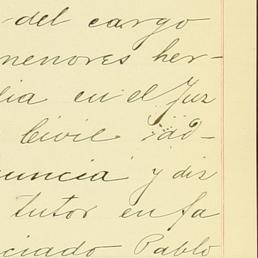 del cargo
menores her-
lia en el Juz
Civil ad-
uncia y dis
tutor en fa
ciado Pablo